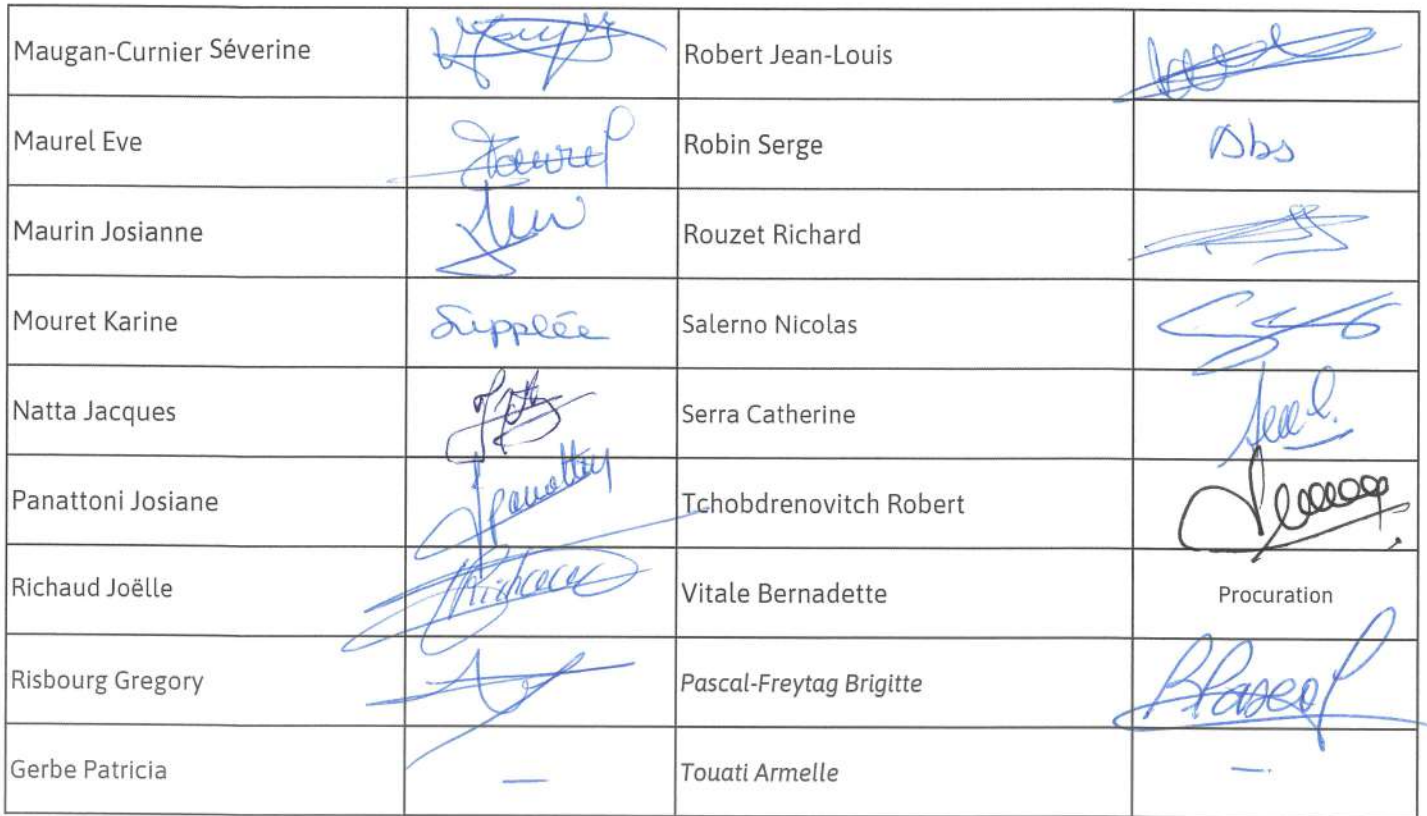 Maugan-Curnier Séverine
Robert Jean-Louis
Maurel Eve
Maurel
Robin Serge
Abs
Maurin Josianne
Rouzet Richard
Mouret Karine
Suppléé
Salerno Nicolas
Natta Jacques
Serra Catherine
Panattoni Josiane
Tchobdrenovitch Robert
Richaud Joëlle
Vitale Bernadette
Procuration
Risbourg Gregory
Pascal-Freytag Brigitte
BPascal
Gerbe Patricia
—
Touati Armelle
—